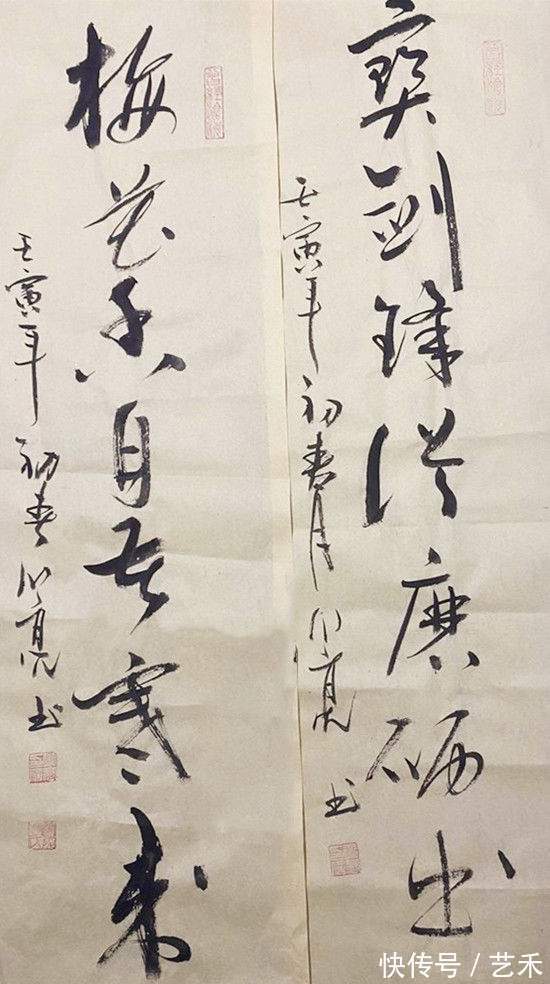 宝剑锋从磨砺出
壬寅年初春月川亮书
梅花香自苦寒来
壬寅年初春川亮书
快传号/艺禾